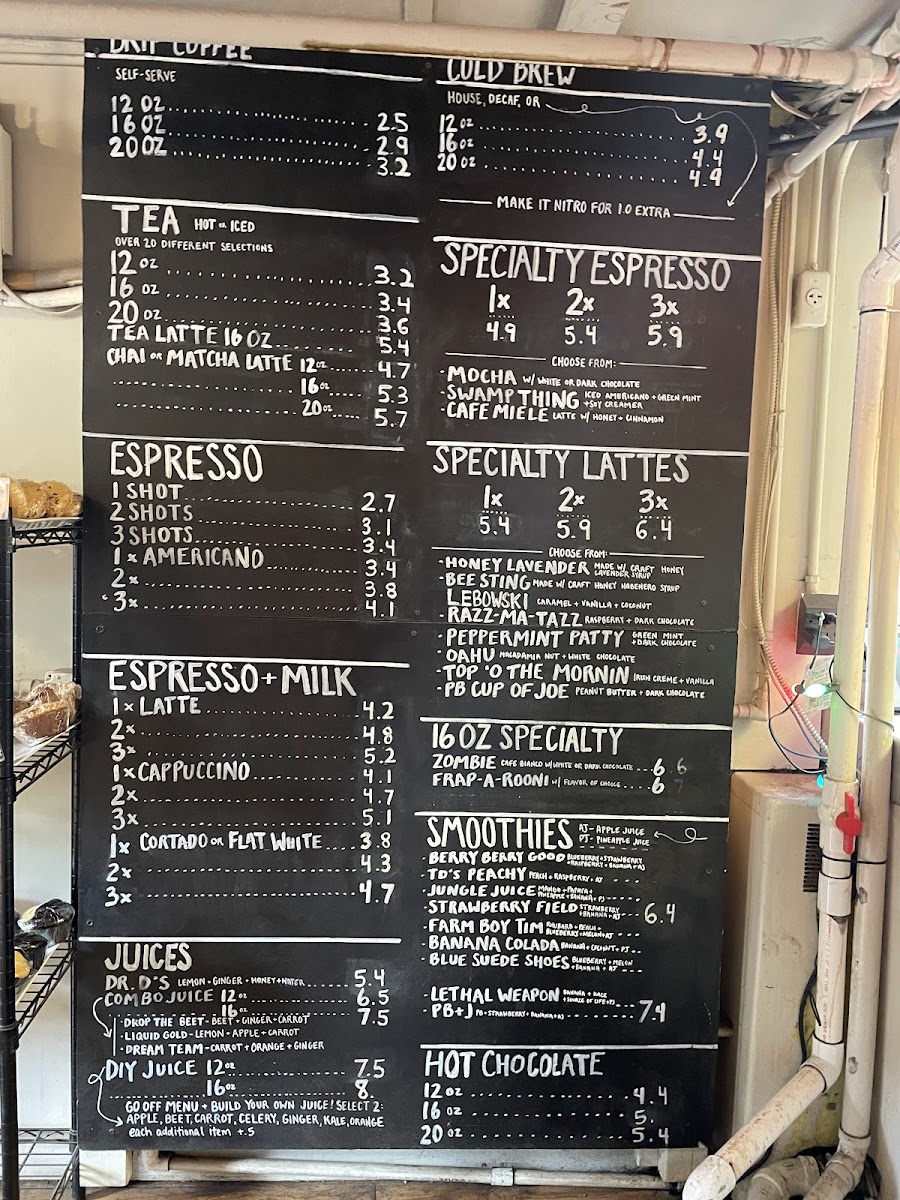 DRIP COFFEE
SELF-SERVE
12 OZ 2.5
16 OZ 2.9
20 OZ 3.2
TEA HOT OR ICED
OVER 20 DIFFERENT SELECTIONS
12 OZ 3.2
16 OZ 3.4
20 OZ 3.6
TEA LATTE 16 OZ 5.4
CHAI OR MATCHA LATTE 12OZ 4.7
16OZ 5.3
20OZ 5.7
ESPRESSO
1 SHOT 2.7
2 SHOTS 3.1
3 SHOTS 3.4
1X AMERICANO 3.4
2X 3.8
3X 4.1
ESPRESSO + MILK
1X LATTE 4.2
2X 4.8
3X 5.2
1X CAPPUCCINO 4.1
2X 4.7
3X 5.1
1X CORTADO OR FLAT WHITE 3.8
2X 4.3
3X 4.7
JUICES
DR. D'S LEMON + GINGER + HONEY + WATER 5.4
COMBO JUICE 12OZ 6.5
16OZ 7.5
· DROP THE BEET - BEET + GINGER + CARROT
· LIQUID GOLD - LEMON + APPLE + CARROT
· DREAM TEAM - CARROT + ORANGE + GINGER
DIY JUICE 12OZ 7.5
16OZ 8.
GO OFF MENU + BUILD YOUR OWN JUICE! SELECT 2:
APPLE, BEET, CARROT, CELERY, GINGER, KALE, ORANGE
each additional item +.5
COLD BREW
HOUSE, DECAF, OR
12 OZ 3.9
16 OZ 4.4
20 OZ 4.9
MAKE IT NITRO FOR 1.0 EXTRA
SPECIALTY ESPRESSO
1X 2X 3X
4.9 5.4 5.9
CHOOSE FROM:
· MOCHA W/ WHITE OR DARK CHOCOLATE
· SWAMP THING ICED AMERICANO + GREEN MINT
+ SOY CREAMER
· CAFE MIELE LATTE W/ HONEY + CINNAMON
SPECIALTY LATTES
1X 2X 3X
5.4 5.9 6.4
CHOOSE FROM:
· HONEY LAVENDER MADE W/ CRAFT HONEY
LAVENDER SYRUP
· BEE STING MADE W/ CRAFT HONEY HABENERO SYRUP
LEBOWSKI CARAMEL + VANILLA + COCONUT
· RAZZ-MA-TAZZ RASPBERRY + DARK CHOCOLATE
· PEPPERMINT PATTY GREEN MINT
+ DARK CHOCOLATE
· OAHU MACADAMIA NUT + WHITE CHOCOLATE
· TOP 'O THE MORNIN IRISH CREME + VANILLA
· PB CUP OF JOE PEANUT BUTTER + DARK CHOCOLATE
16 OZ SPECIALTY
ZOMBIE CAFE BIANCO W/ WHITE OR DARK CHOCOLATE 6
FRAP-A-ROONI W/ FLAVOR OF CHOICE 6
SMOOTHIES AJ - APPLE JUICE
PJ - PINEAPPLE JUICE
· BERRY BERRY GOOD BLUEBERRY + STRAWBERRY
+ RASPBERRY + BANANA + AJ
· TD'S PEACHY PEACH + RASPBERRY + AJ
· JUNGLE JUICE MANGO + PAPAYA +
PINEAPPLE + BANANA + PJ
· STRAWBERRY FIELD STRAWBERRY
+ BANANA + AJ 6.4
· FARM BOY TIM RHUBARB + PEACH +
BLUEBERRY + MELON + AJ
· BANANA COLADA BANANA + COCONUT + PJ
· BLUE SUEDE SHOES BLUEBERRY + MELON
+ BANANA + AJ
· LETHAL WEAPON BANANA + KALE
+ SOURCE OF LIFE + PJ
· PB+J PB + STRAWBERRY + BANANA + AJ 7.4
HOT CHOCOLATE
12 OZ 4.4
16 OZ 5.
20 OZ 5.4